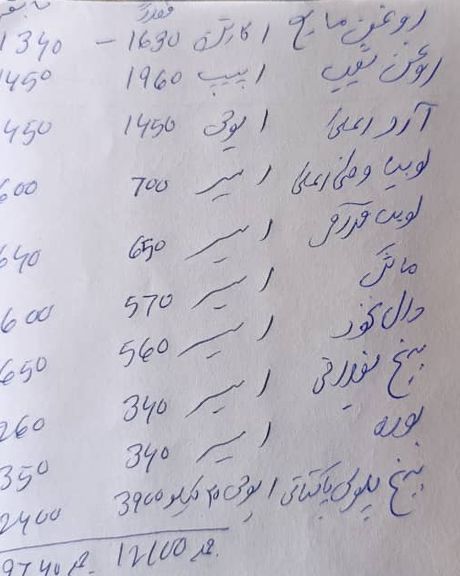 روغن مایع ۱ کارتن 1630 - 1340
روغن پیپ ۱ پیپ 1960 1450
آرد اعلی ۱ بوجی 1450 450
لوبیا وطنی اعلی ۱ سیر 700 600
لوبیا ۱ سیر 650 640
ماش ۱ سیر 570 600
دال نخود ۱ سیر 560 650
برنج ۱ سیر 340 260
بوره ۱ سیر 340 350
برنج پاکستانی ۱ بوجی 3900 2400
9740 12100